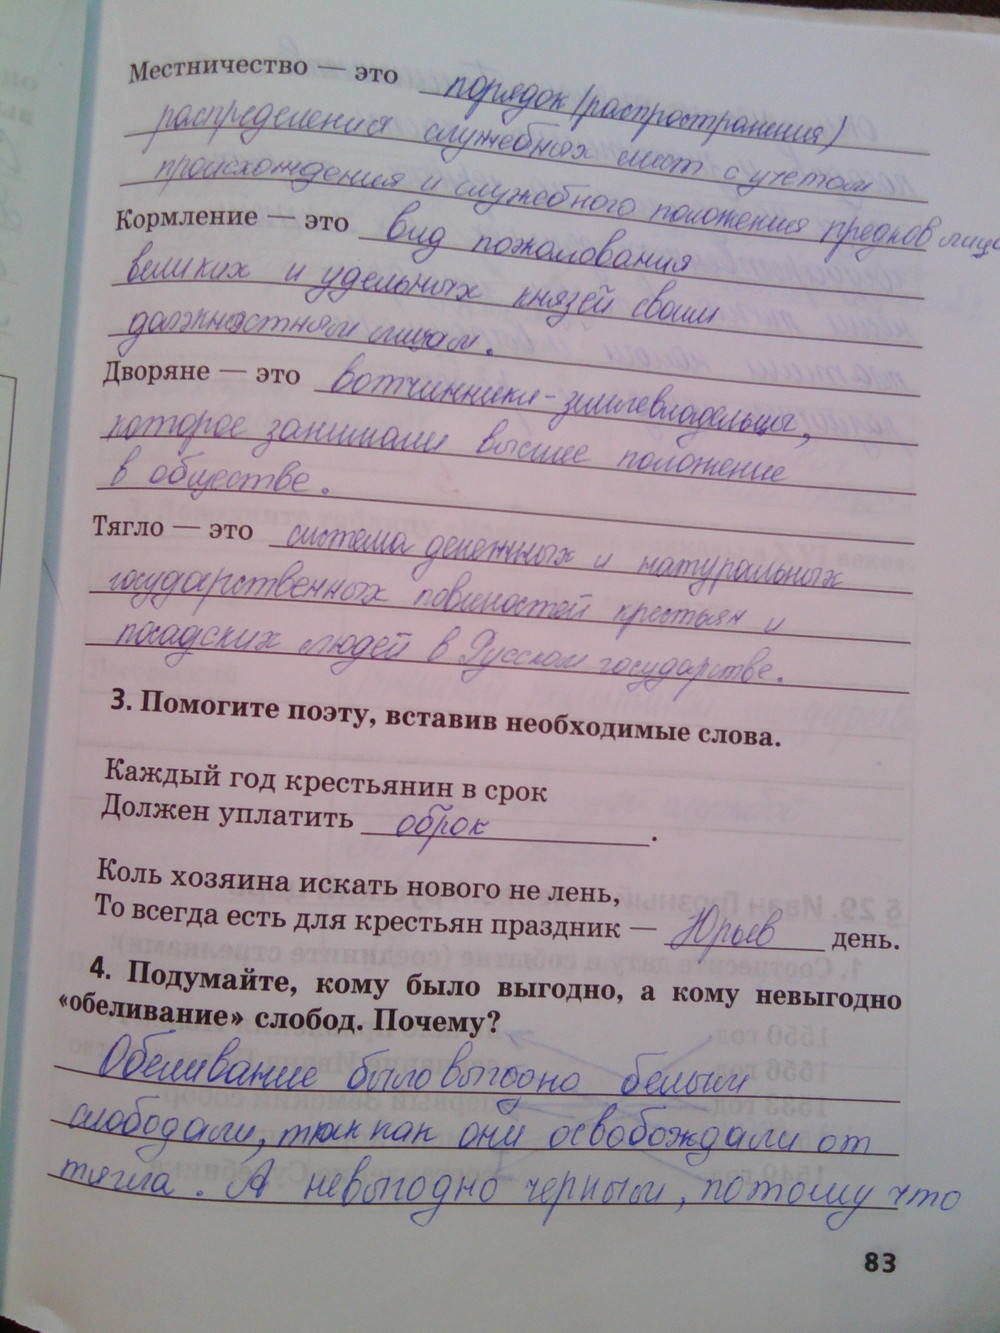 Местничество — это порядок (распространения)
распределения служебных мест с учетом
происхождения и служебного положения предков лица
Кормление — это вид пожалования
великих и удельных князей своим
должностным лицам.
Дворяне — это вотчинники-землевладельцы,
которое занимали высшее положение
в обществе.
Тягло — это система денежных и натуральных
государственных повиностей крестьян и
посадских людей в Русском государстве.
3. Помогите поэту, вставив необходимые слова.
Каждый год крестьянин в срок
Должен уплатить оброк.
Коль хозяина искать нового не лень,
То всегда есть для крестьян праздник — Юрьев день.
4. Подумайте, кому было выгодно, а кому невыгодно
«обеливание» слобод. Почему?
Обеливание было выгодно белым
слободам, так как они освобождали от
тягла. А невыгодно черным, потому что
83